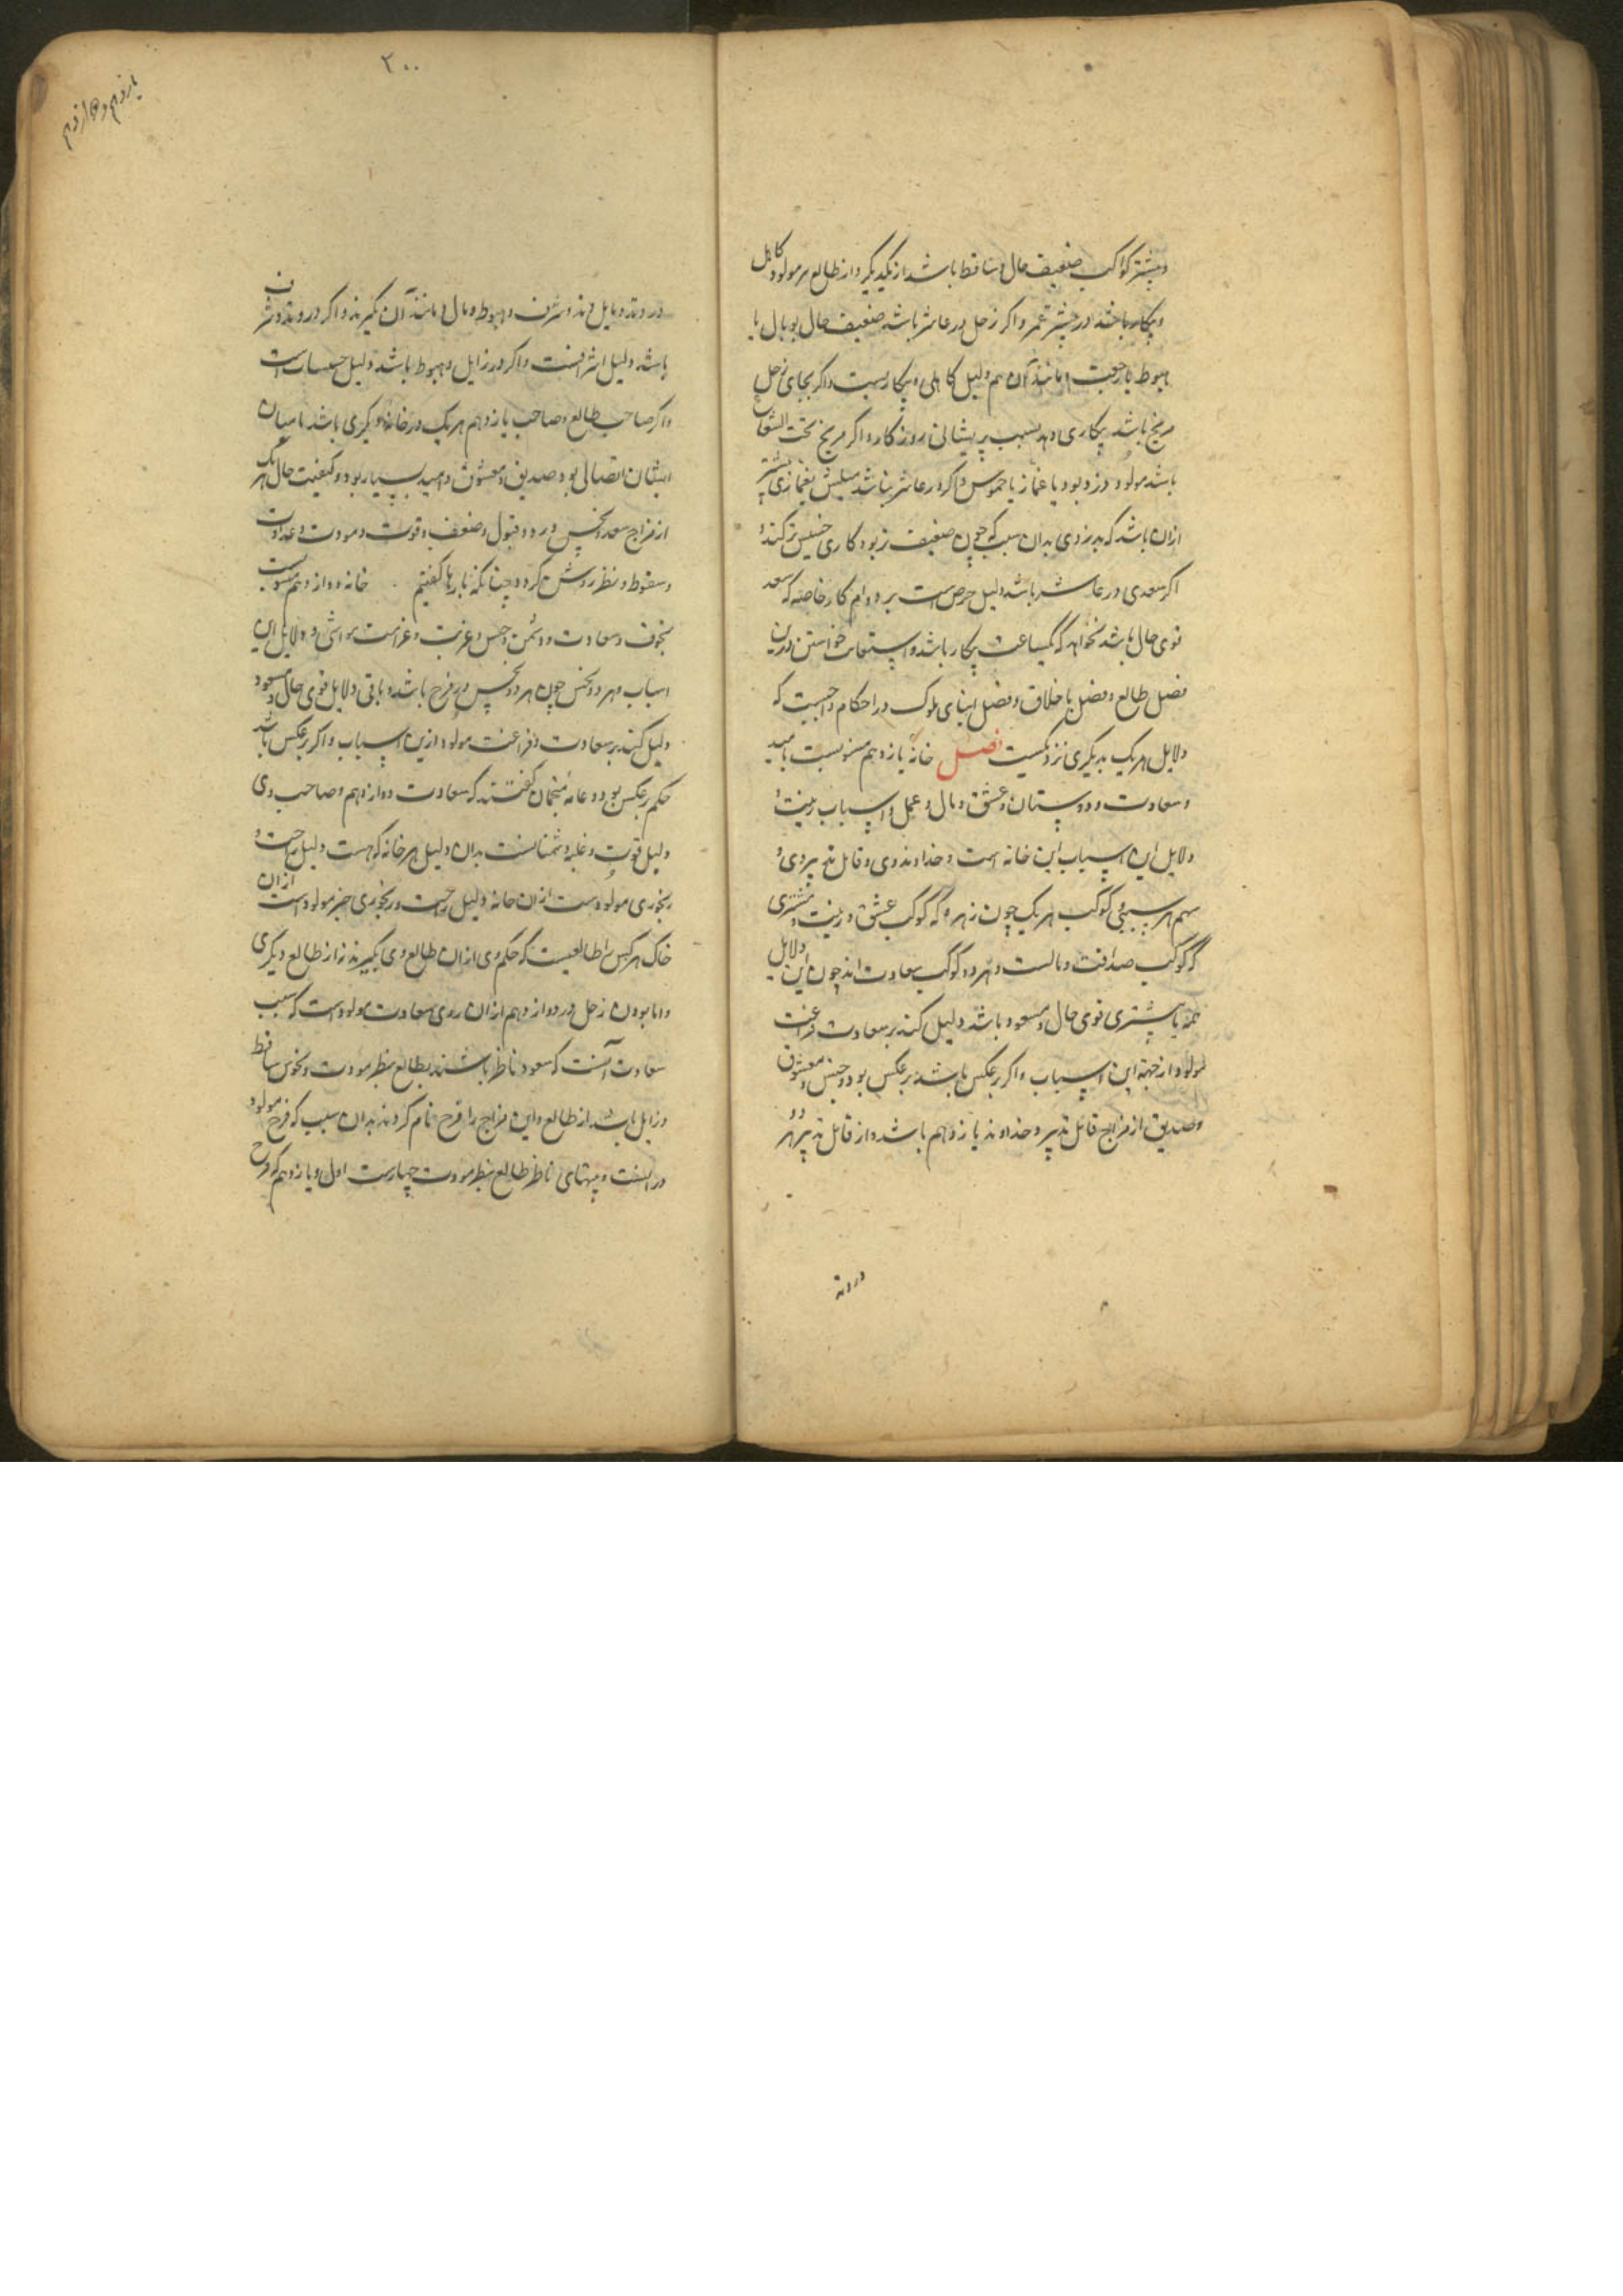 و بیشتر کواکب ضعیف حال و ساقط باشد از یکدیگر و از طالع مولود کاهل
و بیکار باشد در بیشتر عمر و اگر زحل در عاشر باشد ضعیف حال بوبال یا
هبوط یا رجعت و مانند آن هم دلیل کاهلی و بیکاریست و اگر بجای زحل
مریخ باشد بیکاری وی بسبب پریشانی روزگار و اگر مریخ تحت الشعاع
باشد مولود دزد بود یا غماز یا و اگر در عاشر نباشد میلش بغمازی بیشتر
ازان باشد که بدزدی بدان سبب که چون ضعیف تر بود کاری خسیس تر کند و
اگر سعدی در عاشر باشد دلیل حرص است بر دوام کار خاصه که سعد
قوی حال باشد نخواهد که یکساعت بیکار باشد و استعانت خواستن درین
فصل طالع و فصل با خلاق و فصل ابنای ملوک در احکام واجبست که
دلایل هر یک بدیگری نزدیکست فصل خانهٔ یازدهم منسوبست بامید
و سعادت و دوستان و عشق و مال و عمل و اسباب زینت و
دلایل این اسباب این خانه است و خداوند وی و قابل تدبیر وی و
سهم هر سببی و کوکب هر یک چون زهره که کوکب عشق و زینت و مشتری
که کوکب صداقت و مالست و هر دو کوکب سعادت اند چون این دلایل
همه یا بیشتری قوی حال و مسعود باشد دلیل کند بر سعادت و فراغت
مولود از جهة این اسباب و اگر برعکس باشد برعکس بود و جنس معشوق
و صدیق از مزاج قابل تدبیر و خداوند یازدهم باشد و از قابل تدبیر هر دو
در وتد
۳۰۰
یازدهم و دوازدهم
در وتد و مایل وتد و شرف و هبوط و مال و مانند آن گیرند و اگر در وتد و شرف
باشد دلیل اشرافست و اگر در زایل و هبوط باشد دلیل است
و اگر صاحب طالع و صاحب یازدهم هر یک در خانهٔ دیگری باشد یا میان
ایشان اتصالی بود صدیق و معشوق و امید بسیار بود و کیفیت حال هر یک
از مزاج سعد و نحس و رد و قبول و ضعف و قوت و مودت و عداوت
و سقوط و نظر روشن گردد چنانکه بارها گفتیم . خانه دوازدهم منسوبست
بخوف و سعادت و دشمن و حبس و غربت و غرامت و مواشی و دلایل این
اسباب و هر دو نحس چون هر دو نحس در فرح باشد و باقی دلایل قوی حال و مسعود
دلیل کند بر سعادت و فراغت مولود ازین اسباب و اگر برعکس باشد
حکم برعکس بود و عامهٔ منجمان گفتند که سعادت دوازدهم و صاحب وی
دلیل قوت و غلبهٔ دشمنانست بدان دلیل هر خانه که هست دلیل راحت و
رنجوری مولودست ازان خانه دلیل راحت و رنجوری جز مولود است ازان
خاک هر کس را طالعیست که حکم وی ازان طالع وی گیرند نه از طالع دیگری
و اما بودن زحل در دوازدهم ازان روی سعادت مولودست که سبب
سعادت آنست که سعود ناظر باشند بطالع بنظر مودت و نحوس ساقط
و زایل باشد از طالع و این مزاج را فرح نام کردند بدان سبب که فرح مولود
در آنست و بیتهای ناظر طالع بنظر مودت چهارست اول و یازدهم که فرح